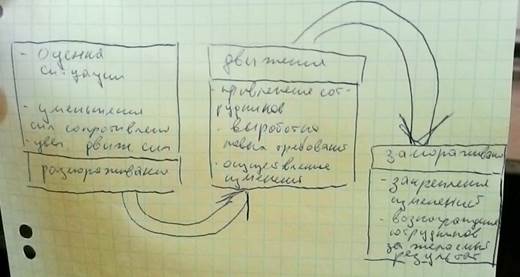 - Оценка
ситуации
- уменьшения
сил сопротивлен
- увел. движ сил
размораживание
движения
- привлечение сот-
рудников
- выработка
новых требований
- осуществление
изменений
замораживание
- закрепления
изменений
- вознаграждение
сотрудников
за желаемый
результат